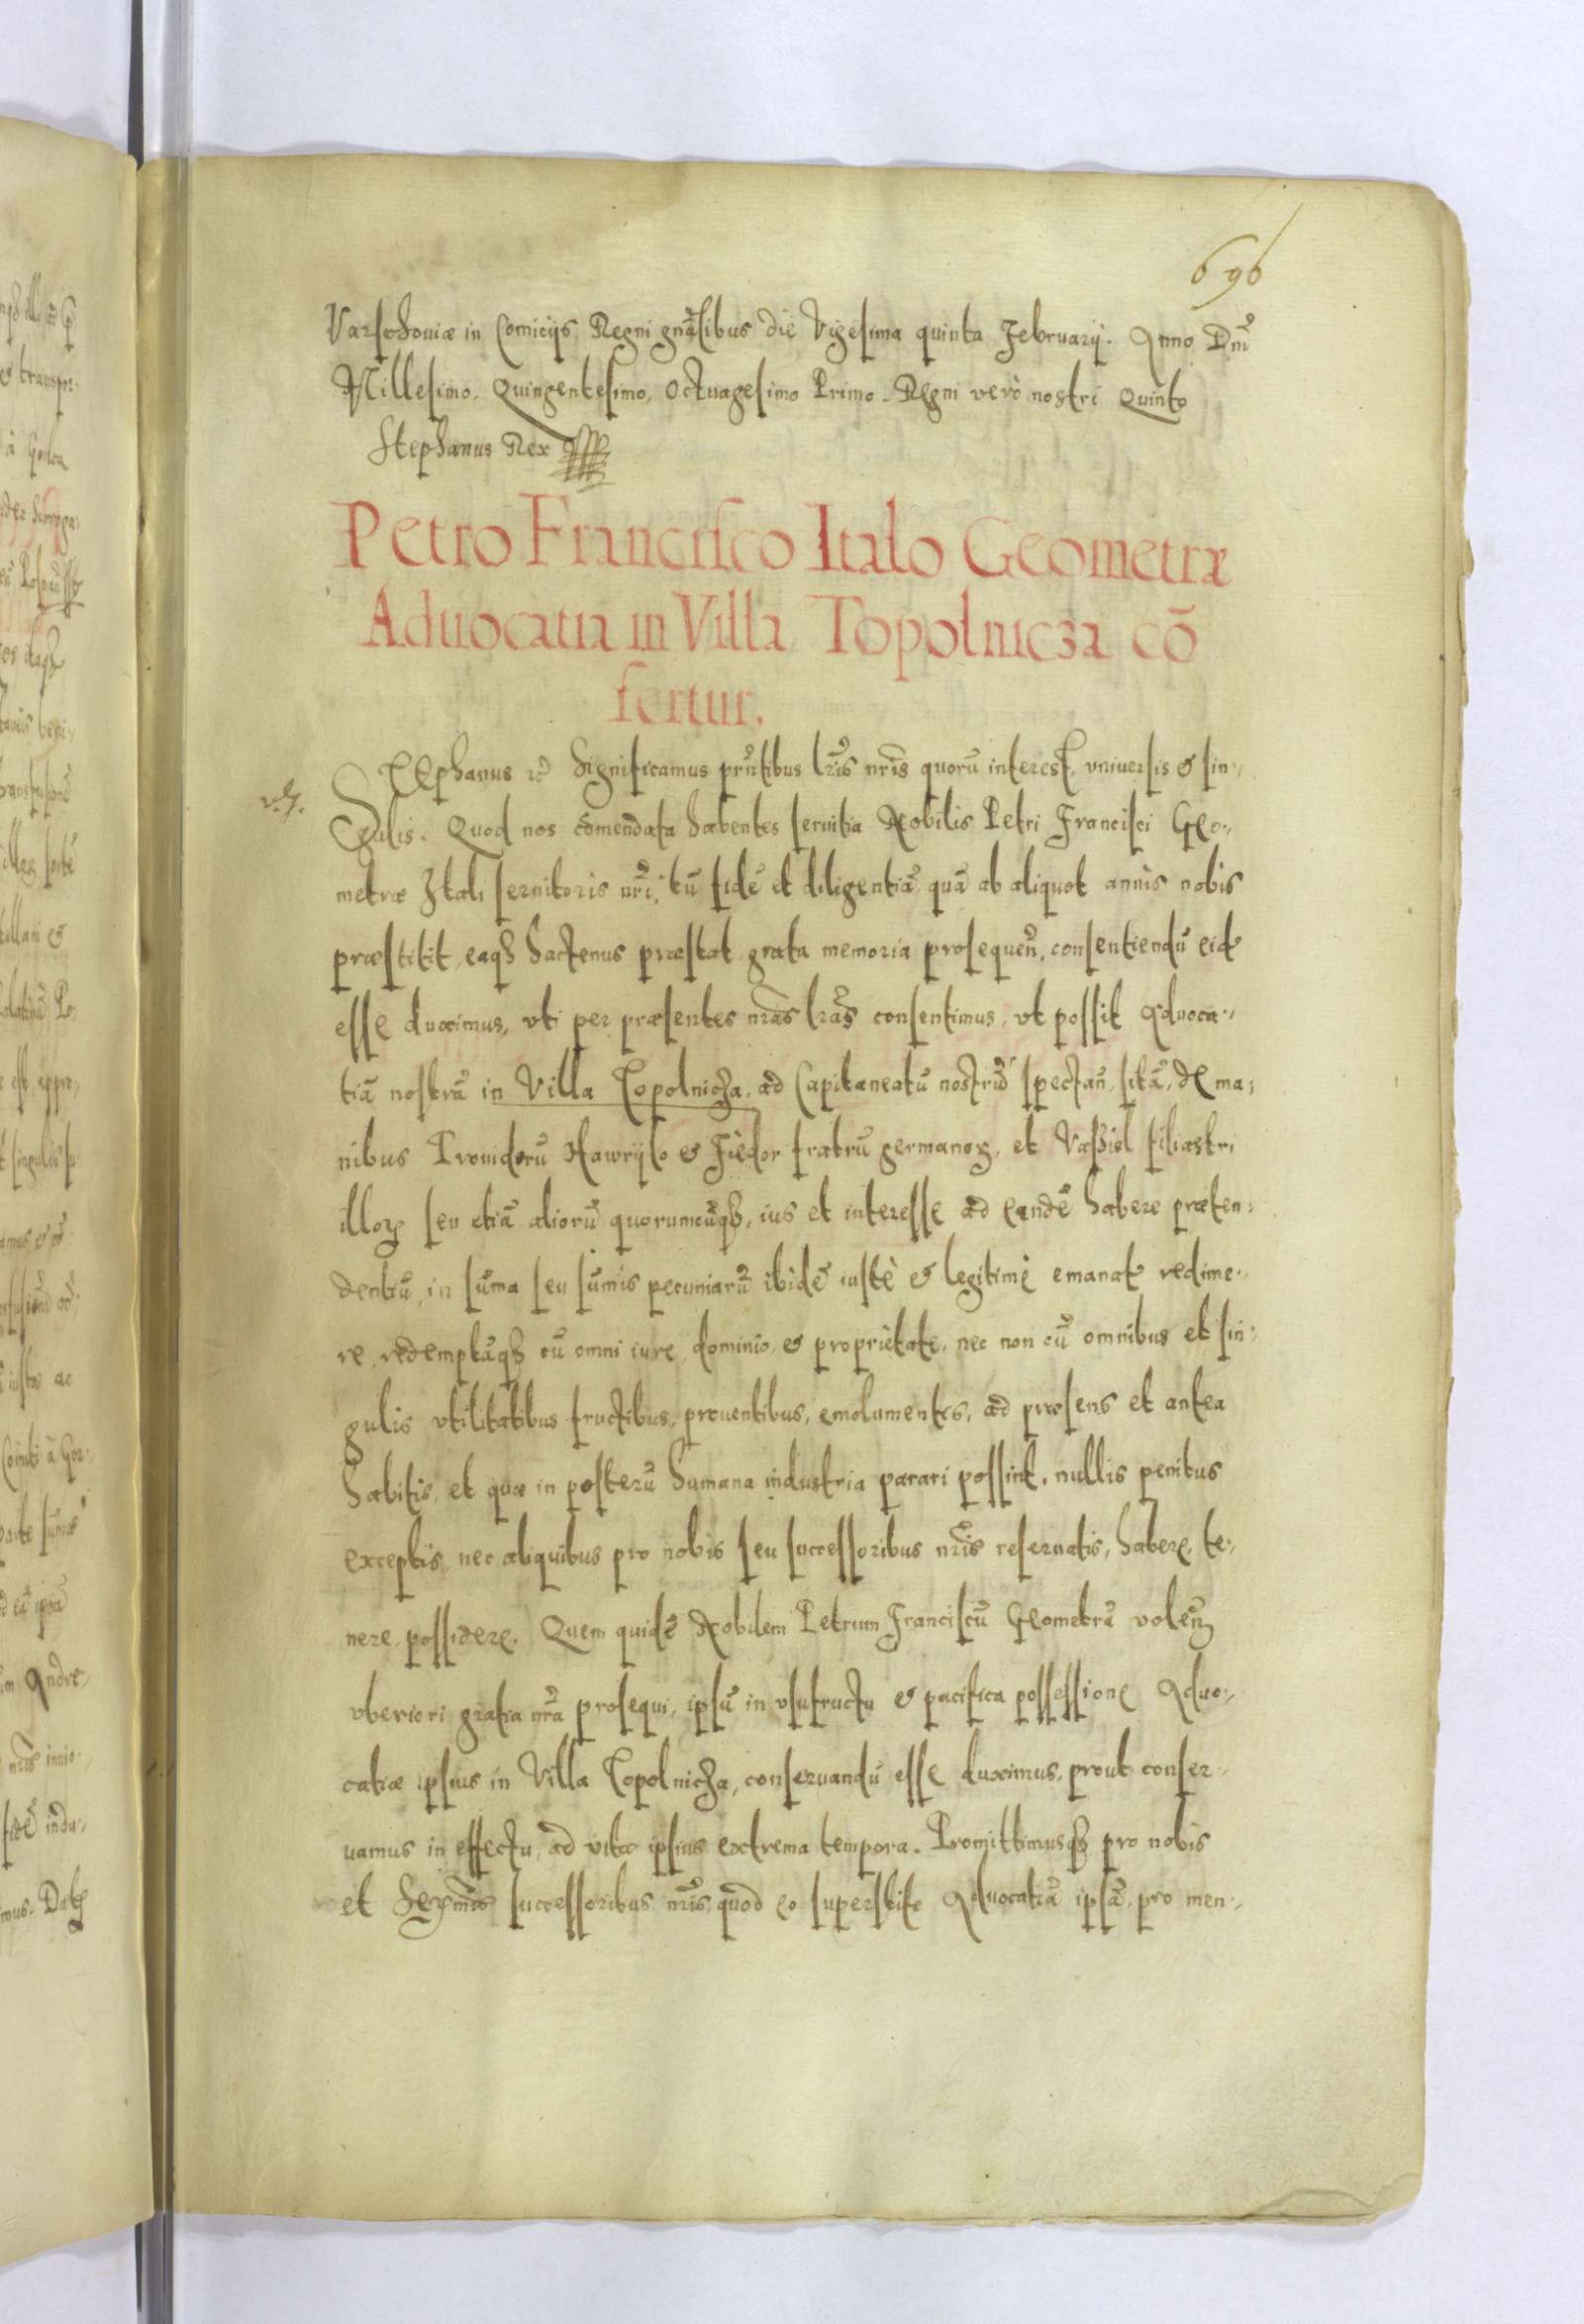 696
Varschouiæ in Comicijs Regni gnãlibus die Vigesima quinta Februarij. Anno Dnĩ
Millesimo, Quingentesimo, Octuagesimo Primo. Regni verò nostri Quinto
Stephanus Rex
Petro Francisco Italo Geometræ
Aduocatia in Villa Topolnicza cō
fertur.
STephanus etc̃ Significamus pñtibus lrĩs nrĩs quorũ interest, vniuersis & sin-,
gulis. Quod nos cõmendata habentes seruitia Nobilis Petri Francisci Geo-,
metræ Itali seruitoris nrĩ, tũ fidẽ et diligentiã, quã ab aliquot annis nobis
præstitit, eaqȝ hactenus præstat, grata memoria prosequeñ, consentiendũ eid
esse duximus, vti per præsentes nrãs lrãs consentimus, vt possit Aduoca-,
tiã nostrã in Villa Topolnicza, ad Capitaneatũ nostrũ spectañ, sitã, de ma,
nibus Prouidorũ Hawryło & Fiedor fratrũ germanoꝝ, et Vaßiel filiastri
illoꝝ seu etiã aliorũ quorumcũqȝ, ius et interesse ad eandẽ habere præten,
dentiũ, in sũma seu sũmis pecuniarũ ibidẽ iustè & legitimè emanat redime-,
re, redemptãqȝ cũ omni iure, dominio, & proprietate, nec non cũ omnibus et sin-
gulis vtilitatibus fructibus, prouentibus, emolumentis, ad præsens et antea
habitis, et quæ in posterũ humana industria parari possint, nullis penitus
exceptis, nec aliquibus pro nobis seu successoribus nrĩs reseruatis, habere, te-,
nere, possidere. Quem quidẽ Nobilem Petrum Franciscũ Geometrã voleñ
vberiori gratia nrã prosequi, ipsũ in vsufructu & pacifica possessione Aduo-,
catiæ ipsius in Villa Topolnicza, conseruandũ esse duximus, prout conser-,
uamus in effectu, ad vitæ ipsius extrema tempora. Promittimusqȝ pro nobis
et Serm̃is successoribus nrĩs, quod eo superstite Aduocatiã ipsã, pro men-,